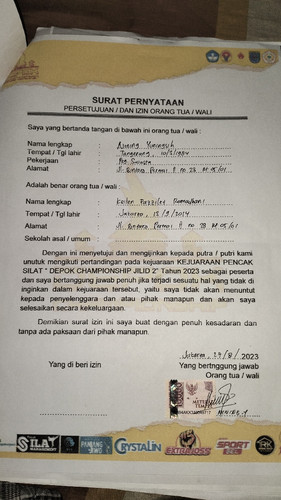 SURAT PERNYATAAN
PERSETUJUAN / DAN IZIN ORANG TUA / WALI
Saya yang bertanda tangan di bawah ini orang tua / wali :
Nama lengkap :
Tempat / Tgl lahir : Tangerang, 10/5/1984
Pekerjaan : Peg Swasta
Alamat : Jl. Bandara Permai A no 28 RT 05/01
Adalah benar orang tua / wali :
Nama lengkap : Ramadhani
Tempat / Tgl lahir : Jakarta, 12/9/2014
Alamat : Jl. Bandara Permai A no 28 RT 05/01
Sekolah asal / umum :
Dengan ini menyetujui dan mengijinkan kepada putra / putri kami
unutuk mengikuti pertandingan pada kejuaraan KEJUARAAN PENCAK
SILAT " DEPOK CHAMPIONSHIP JILID 2" Tahun 2023 sebagai peserta
dan saya bertanggung jawab penuh jika terjadi sesuatu hal yang tidak di
inginkan dalam kejuaraan tersebut, yaitu saya tidak akan menuntut
kepada penyelenggara dan atau pihak manapun dan akan saya
selesaikan secara kekeluargaan.
Demikian surat izin ini saya buat dengan penuh kesadaran dan
tanpa ada paksaan dari pihak manapun.
Jakarta, 29/8/2023
Yang di beri izin Yang bertnggung jawab
Orang tua / wali
SILAT CRYSTALIN EXTRAJOSS SPORT